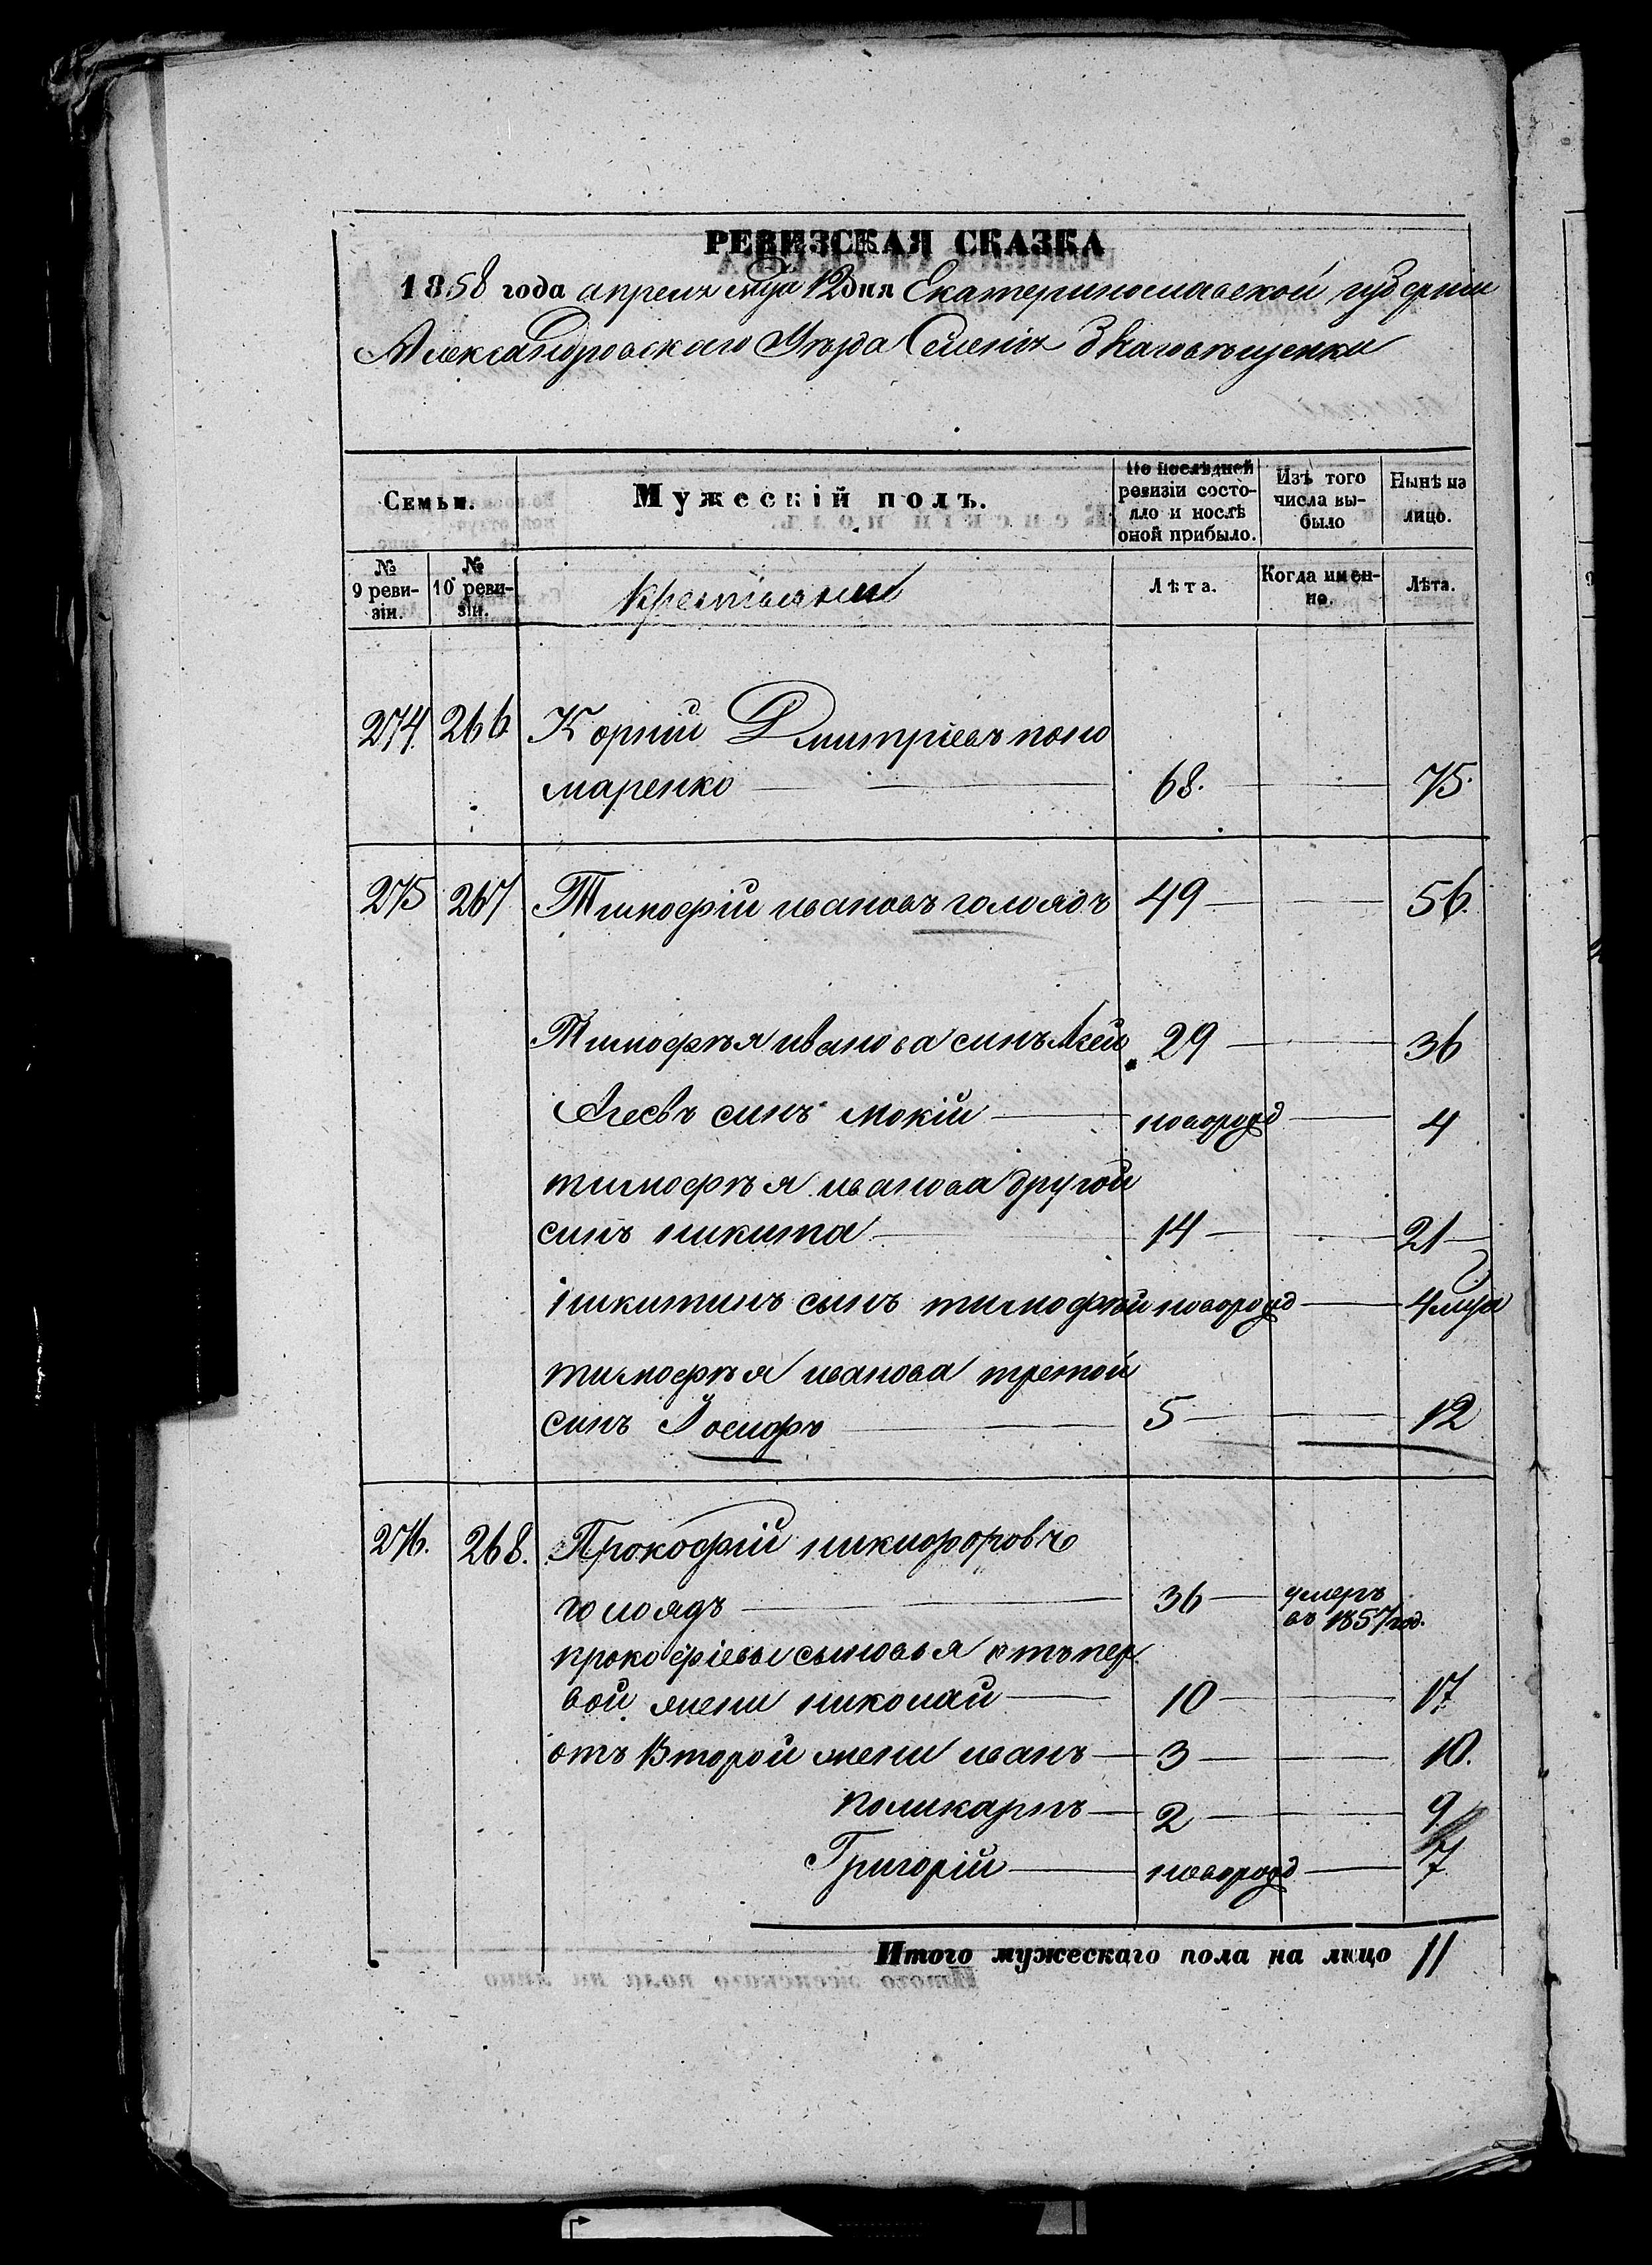 РЕВИЗСКАЯ СКАЗКА
1858 года апреля мца 12 дня Екатеринославской губернии
Александровского Уезда Селенія Благовещенки
Семьи.
Мужескій полъ.
По послѣдней ревизіи состояло и послѣ оной прибыло.
Изъ того числа выбыло
Нынѣ на лицо.
№ 9 ревизіи.
№ 10 ревизіи.
крестьяне
Лѣта.
Когда именно.
Лѣта.
274. 266 Корній Дмитріевъ поно
маренко 68. 75.
275 267 Тимофій ивановъ голоядъ 49 56.
Тимофѣя иванова синъ Агей 29 36
Агеевъ синъ мокій новорожд 4
тимофѣя иванова другой
синъ никита 14 21
никитинъ сынъ тимофѣй новорожд 4 мца
тимофѣя иванова третой
синъ Іосифъ 5 12
276. 268. Прокофій никифоровъ
голоядъ 36 умеръ въ 1857 год.
прокофіевы сыновья отъ пер
вой жени николай 10 17
отъ Второй жени иванъ 3 10.
поликарпъ 2 9
Григорій новорожд 7
Итого мужескаго пола на лицо 11